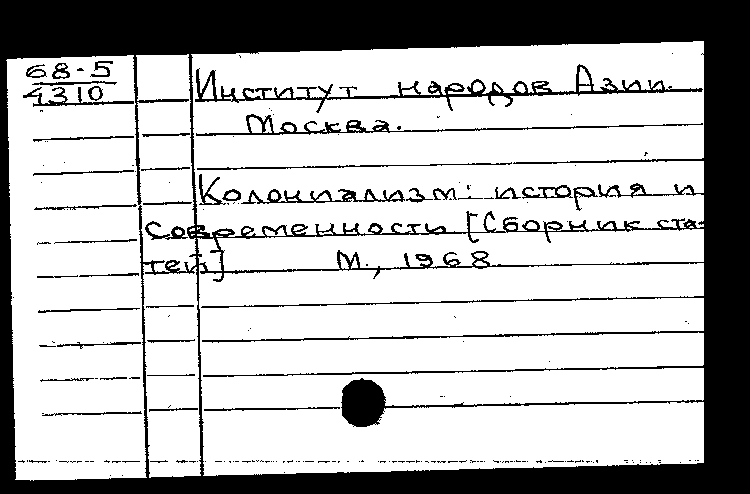 68-5
4310
Институт народов Азии.
Москва.
Колониализм: история и
современность [Сборник ста-
тей] М., 1968